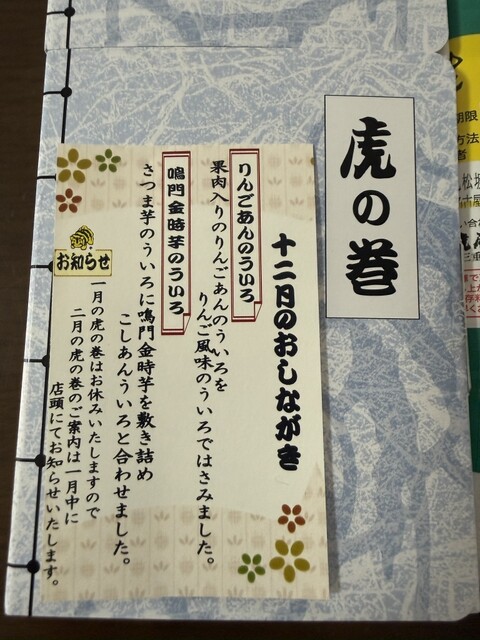 虎の巻
十二月のおしながき
りんごあんのういろ
果肉入りのりんごあんのういろを
りんご風味のういろではさみました。
鳴門金時芋のういろ
さつま芋のういろに鳴門金時芋を敷き詰め
こしあんういろと合わせました。
お知らせ
一月の虎の巻はお休みいたしますので
二月の虎の巻のご案内は一月中に
店頭にてお知らせいたします。
期限
方法
者
松坂
古屋
三重